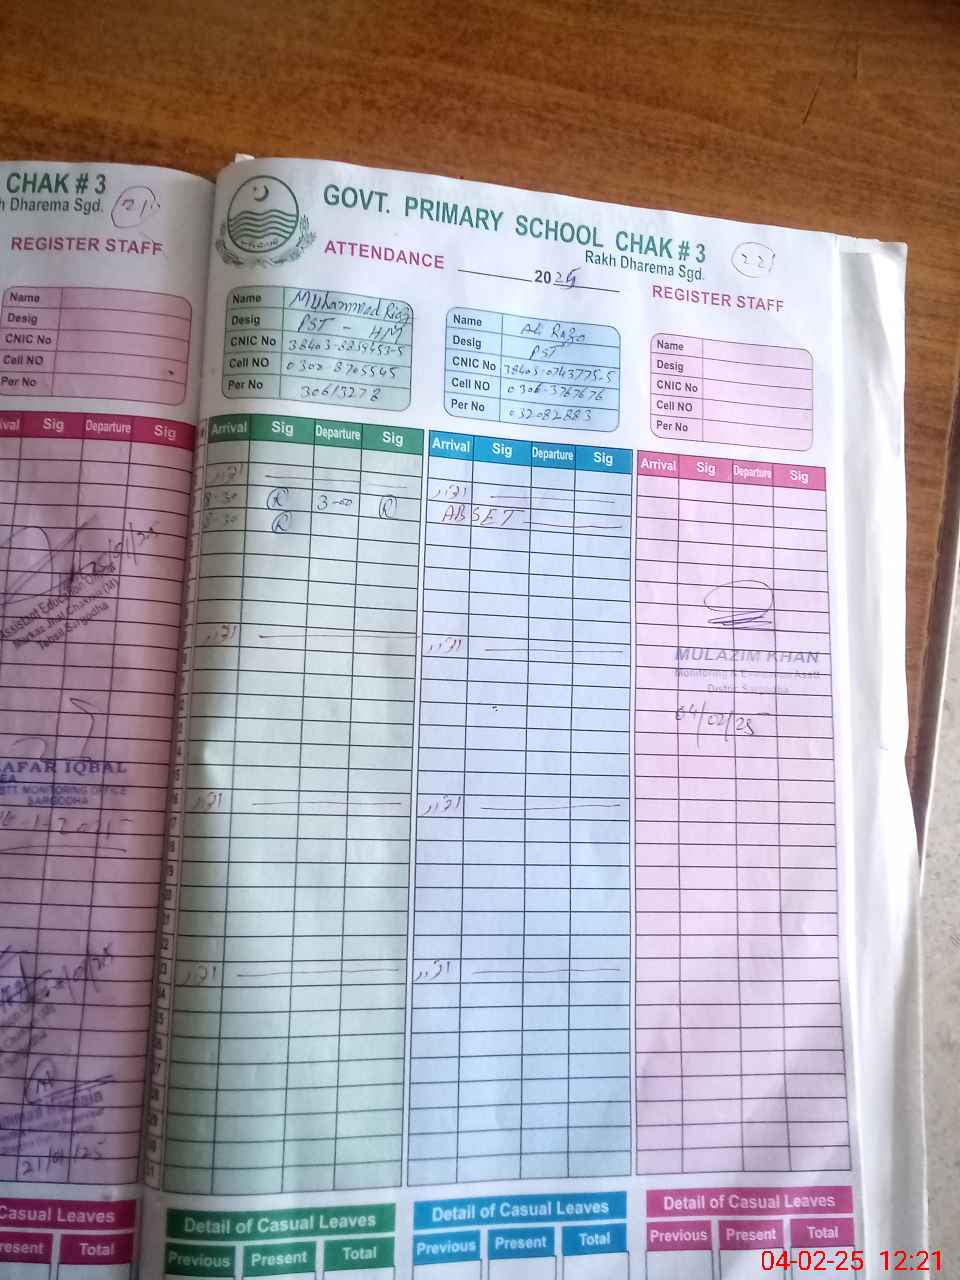 CHAK # 3
h Dharema Sgd.
21
REGISTER STAFF
Name
Desig
CNIC No
Cell NO
Per No
Sig
Departure
Sig
GOVT. PRIMARY SCHOOL CHAK # 3
Rakh Dharema Sgd.
22
ATTENDANCE 2025
REGISTER STAFF
Name Muhammad Riaz
Desig PST - HM
CNIC No
Cell NO 0300-8705545
Per No 30613278
Name Ali Raza
Desig PST
CNIC No 38403-0743775-5
Cell NO 0306-3767676
Per No 032082883
Name
Desig
CNIC No
Cell NO
Per No
Arrival Sig Departure Sig
Arrival Sig Departure Sig
Arrival Sig Departure Sig
اتوار
اتوار
8-30 R 3-00 R
8-30 R
ABSET
اتوار
اتوار
MULAZIM KHAN
Monitoring & Evaluation Asstt.
District Sargodha
04/02/25
اتوار
اتوار
اتوار
اتوار
Assistant Education Officer
Markaz Jhal Chakian (M)
Tehsil Sargodha
ZAFAR IQBAL
MEA
DISTT. MONITORING OFFICE
SARGODHA
21/01/25
Casual Leaves
Present Total
Detail of Casual Leaves
Previous Present Total
Detail of Casual Leaves
Previous Present Total
Detail of Casual Leaves
Previous Present Total
04-02-25 12:21